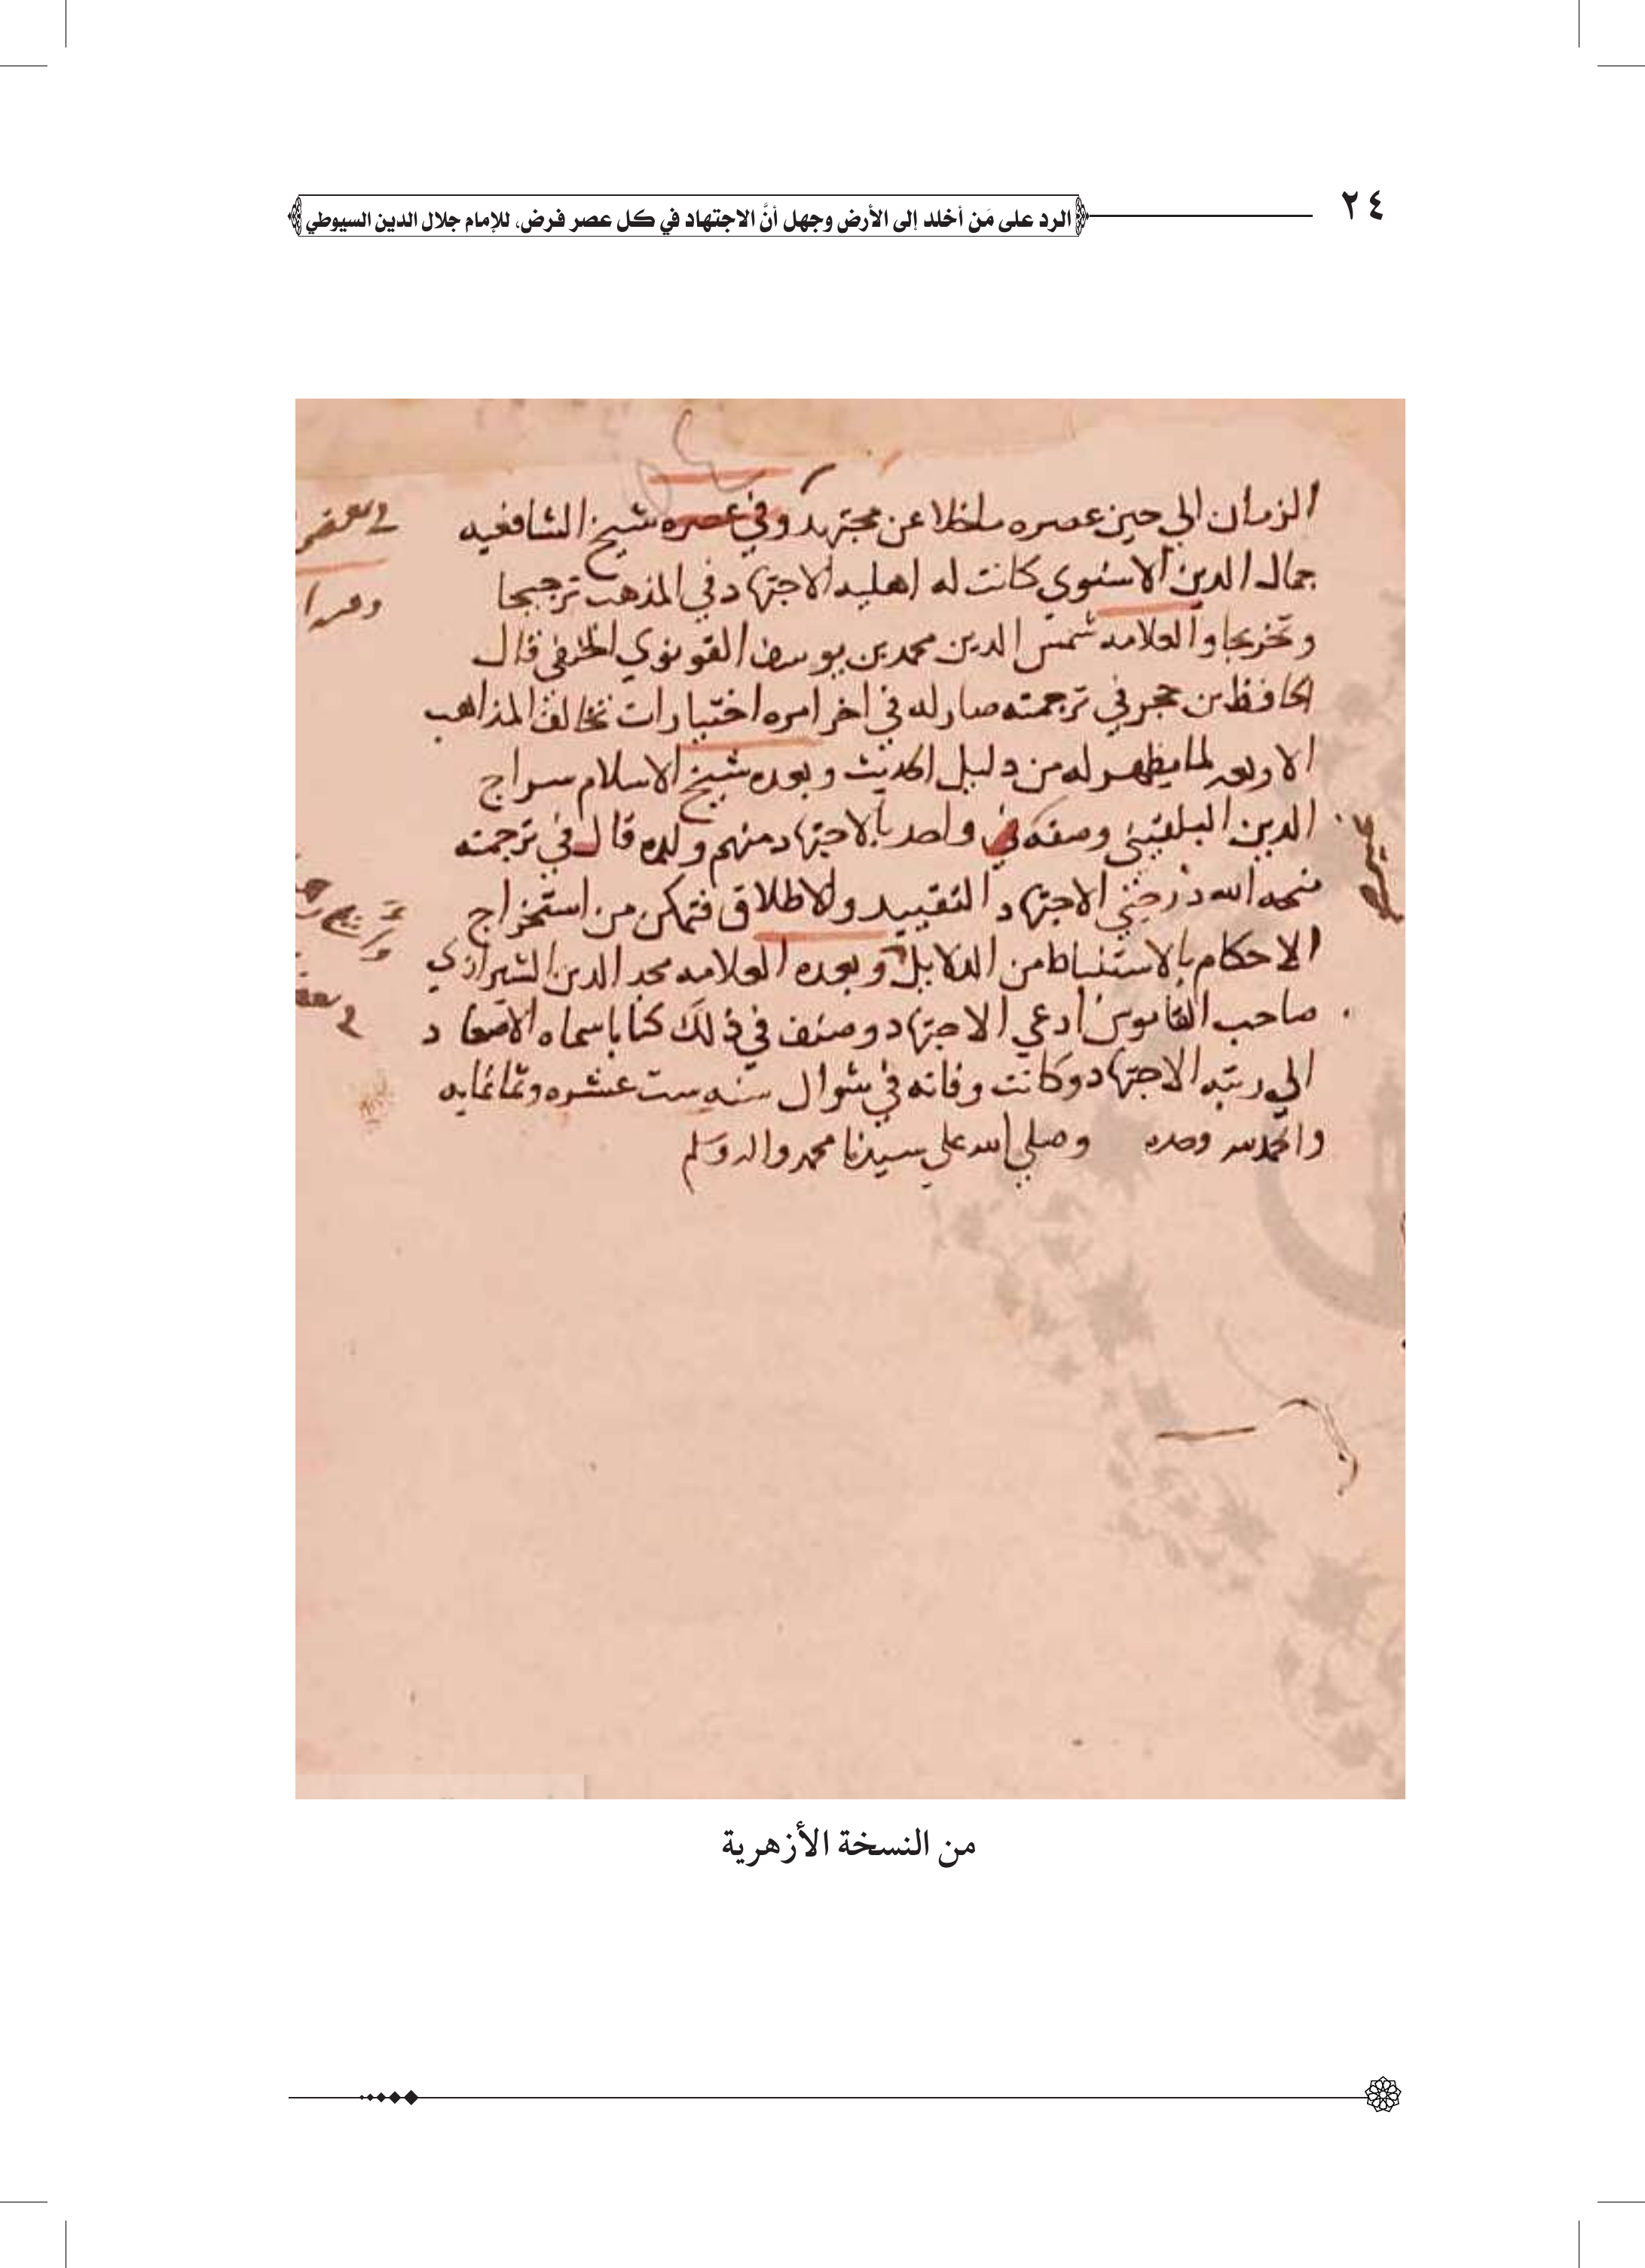 ٢٤
الرد على مَن أخلد إلى الأرض وجهل أنَّ الاجتهاد في كل عصر فرض، للإمام جلال الدين السيوطي
الزمان الي حين عصره ماخلا عن مجتهد وفي عصره شيخ الشافعيه
جمال الدين الاسنوي كانت له اهليه الاجتهاد في المذهب ترجيحا
وتخريجا والعلامه شمس الدين محمد بن يوسف القونوي الحنفي قال
الحافظ بن حجر في ترجمته صار له في اخر امره اختيارات تخالف المذاهب
الاربعه لما يظهر له من دليل الحديث وبعده شيخ الاسلام سراج
الدين البلقيني وصفه واحد بالاجتهاد منهم ولده قال في ترجمته
منحه الله الاجتهاد التقييد والاطلاق فتمكن من استخراج
الاحكام بالاستنباط من الدلايل وبعده العلامه مجد الدين الشيرازي
صاحب القاموس ادعي الاجتهاد وصنف في ذلك كتابا سماه الاصعاد
الي رتبه الاجتهاد وكانت وفاته في شوال سنه ست عشره وثمانمايه
والحمد لله وحده وصلي الله علي سيدنا محمد واله وسلم
من النسخة الأزهرية